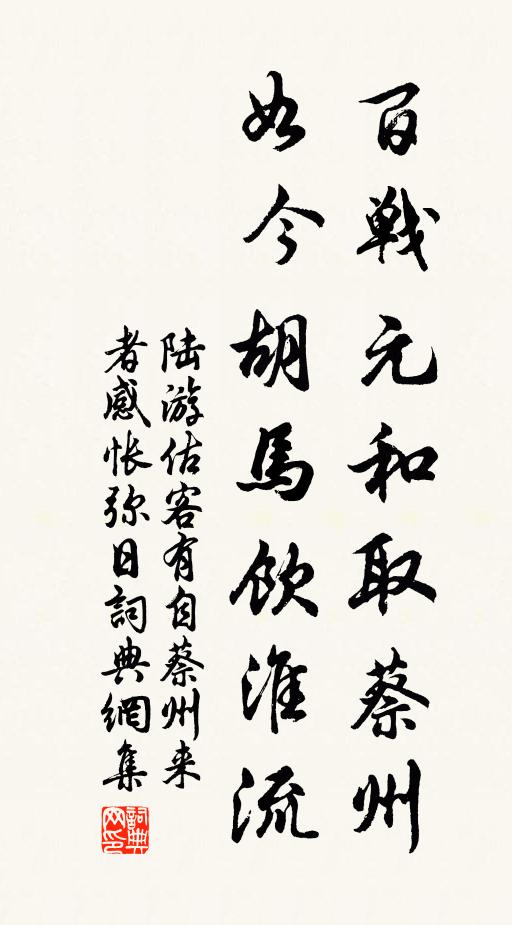 百戦元和取蔡州
如今胡馬飲淮流
陆游估客有自蔡州来
者感怅弥日詞典網集
詞典
网印